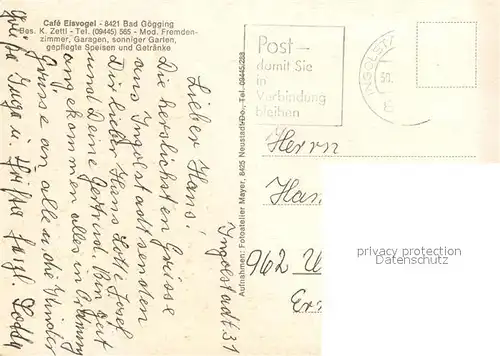 Café Eisvogel - 8421 Bad Gögging
Bes. K. Zettl - Tel. (09445) 565 - Mod. Fremden-
zimmer, Garagen, sonniger Garten,
gepflegte Speisen und Getränke
Lieber Hans!
Die herzlichsten Grüsse
aus Ingolstadt senden
Dir lieber Hans Lotte Josef
und Deine Gertrud. Bin gut
angekommen alles in Ordnung
Grüsse an alle u. die Kinder
Grüsse Inge u.
Ingolstadt 31
Aufnahmen: Fotoatelier Mayer, 8425 Neustadt/Do., Tel. 09445/288
Post -
damit Sie
in
Verbindung
bleiben
INGOLSTA
Herrn
Han
962
privacy protection
Datenschutz